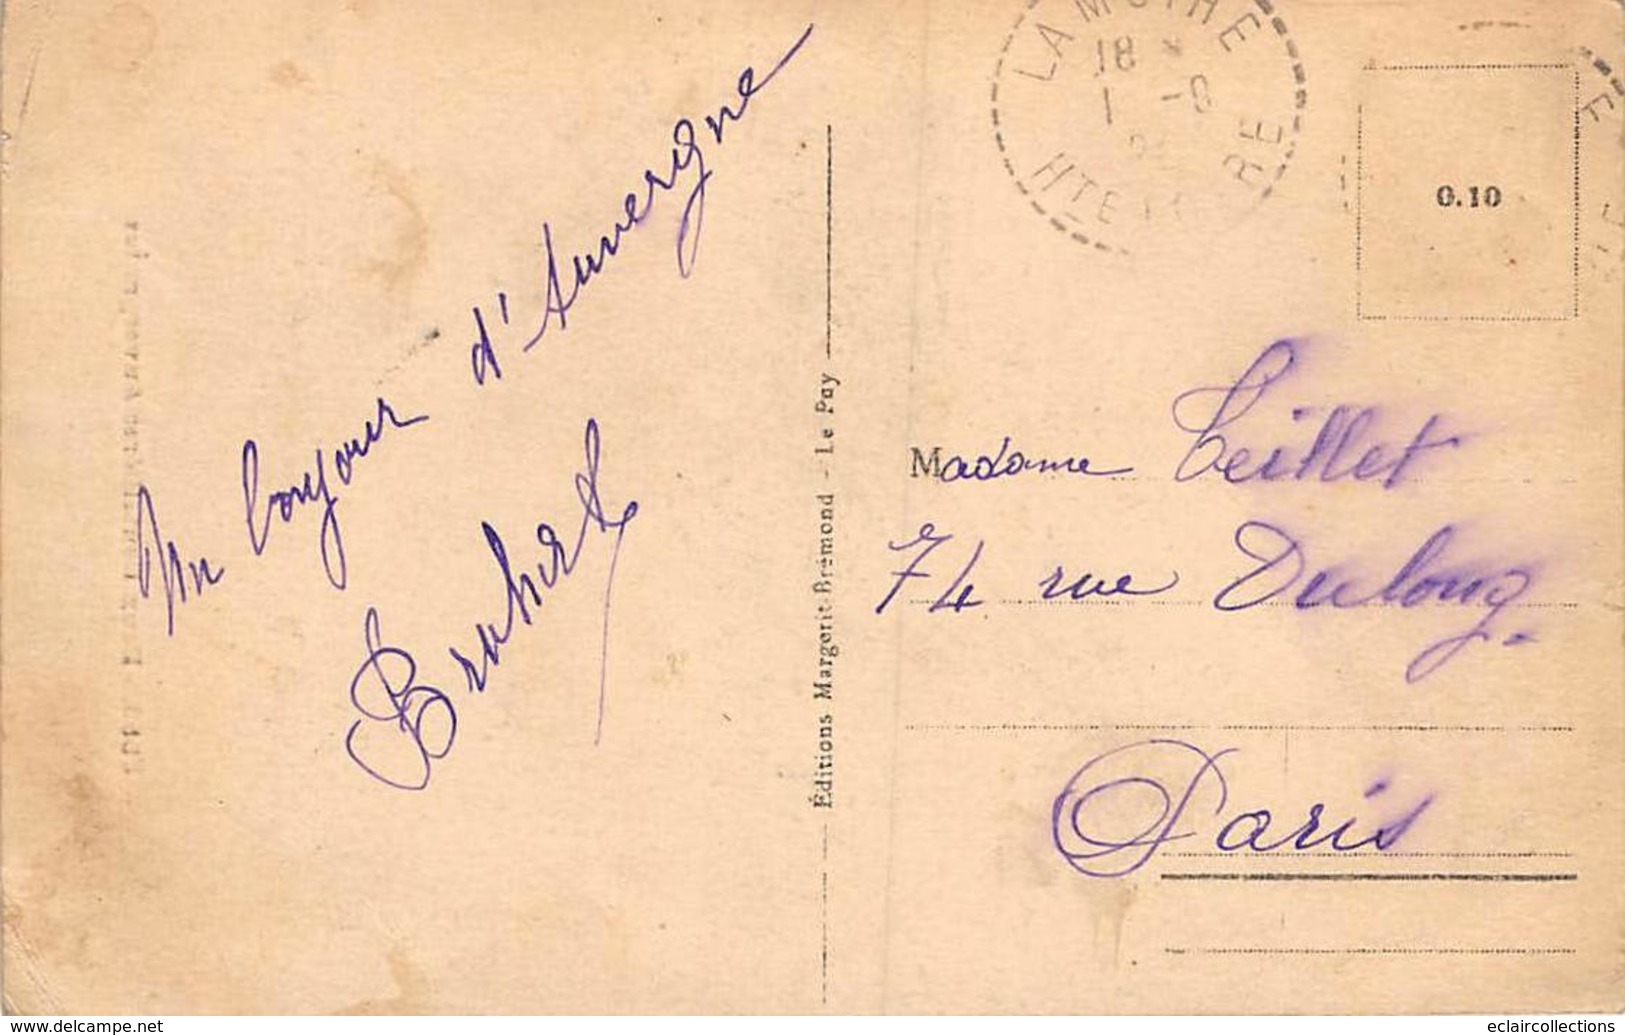 Un bonjour d'Auvergne
Bruhat
Éditions Margerit-Brémond - Le Puy
LAMOTHE
18 *
1 -9
HTE RE
0.10
Madame Teillet
74 rue Dulong.
Paris
www.delcampe.net
eclaircollections